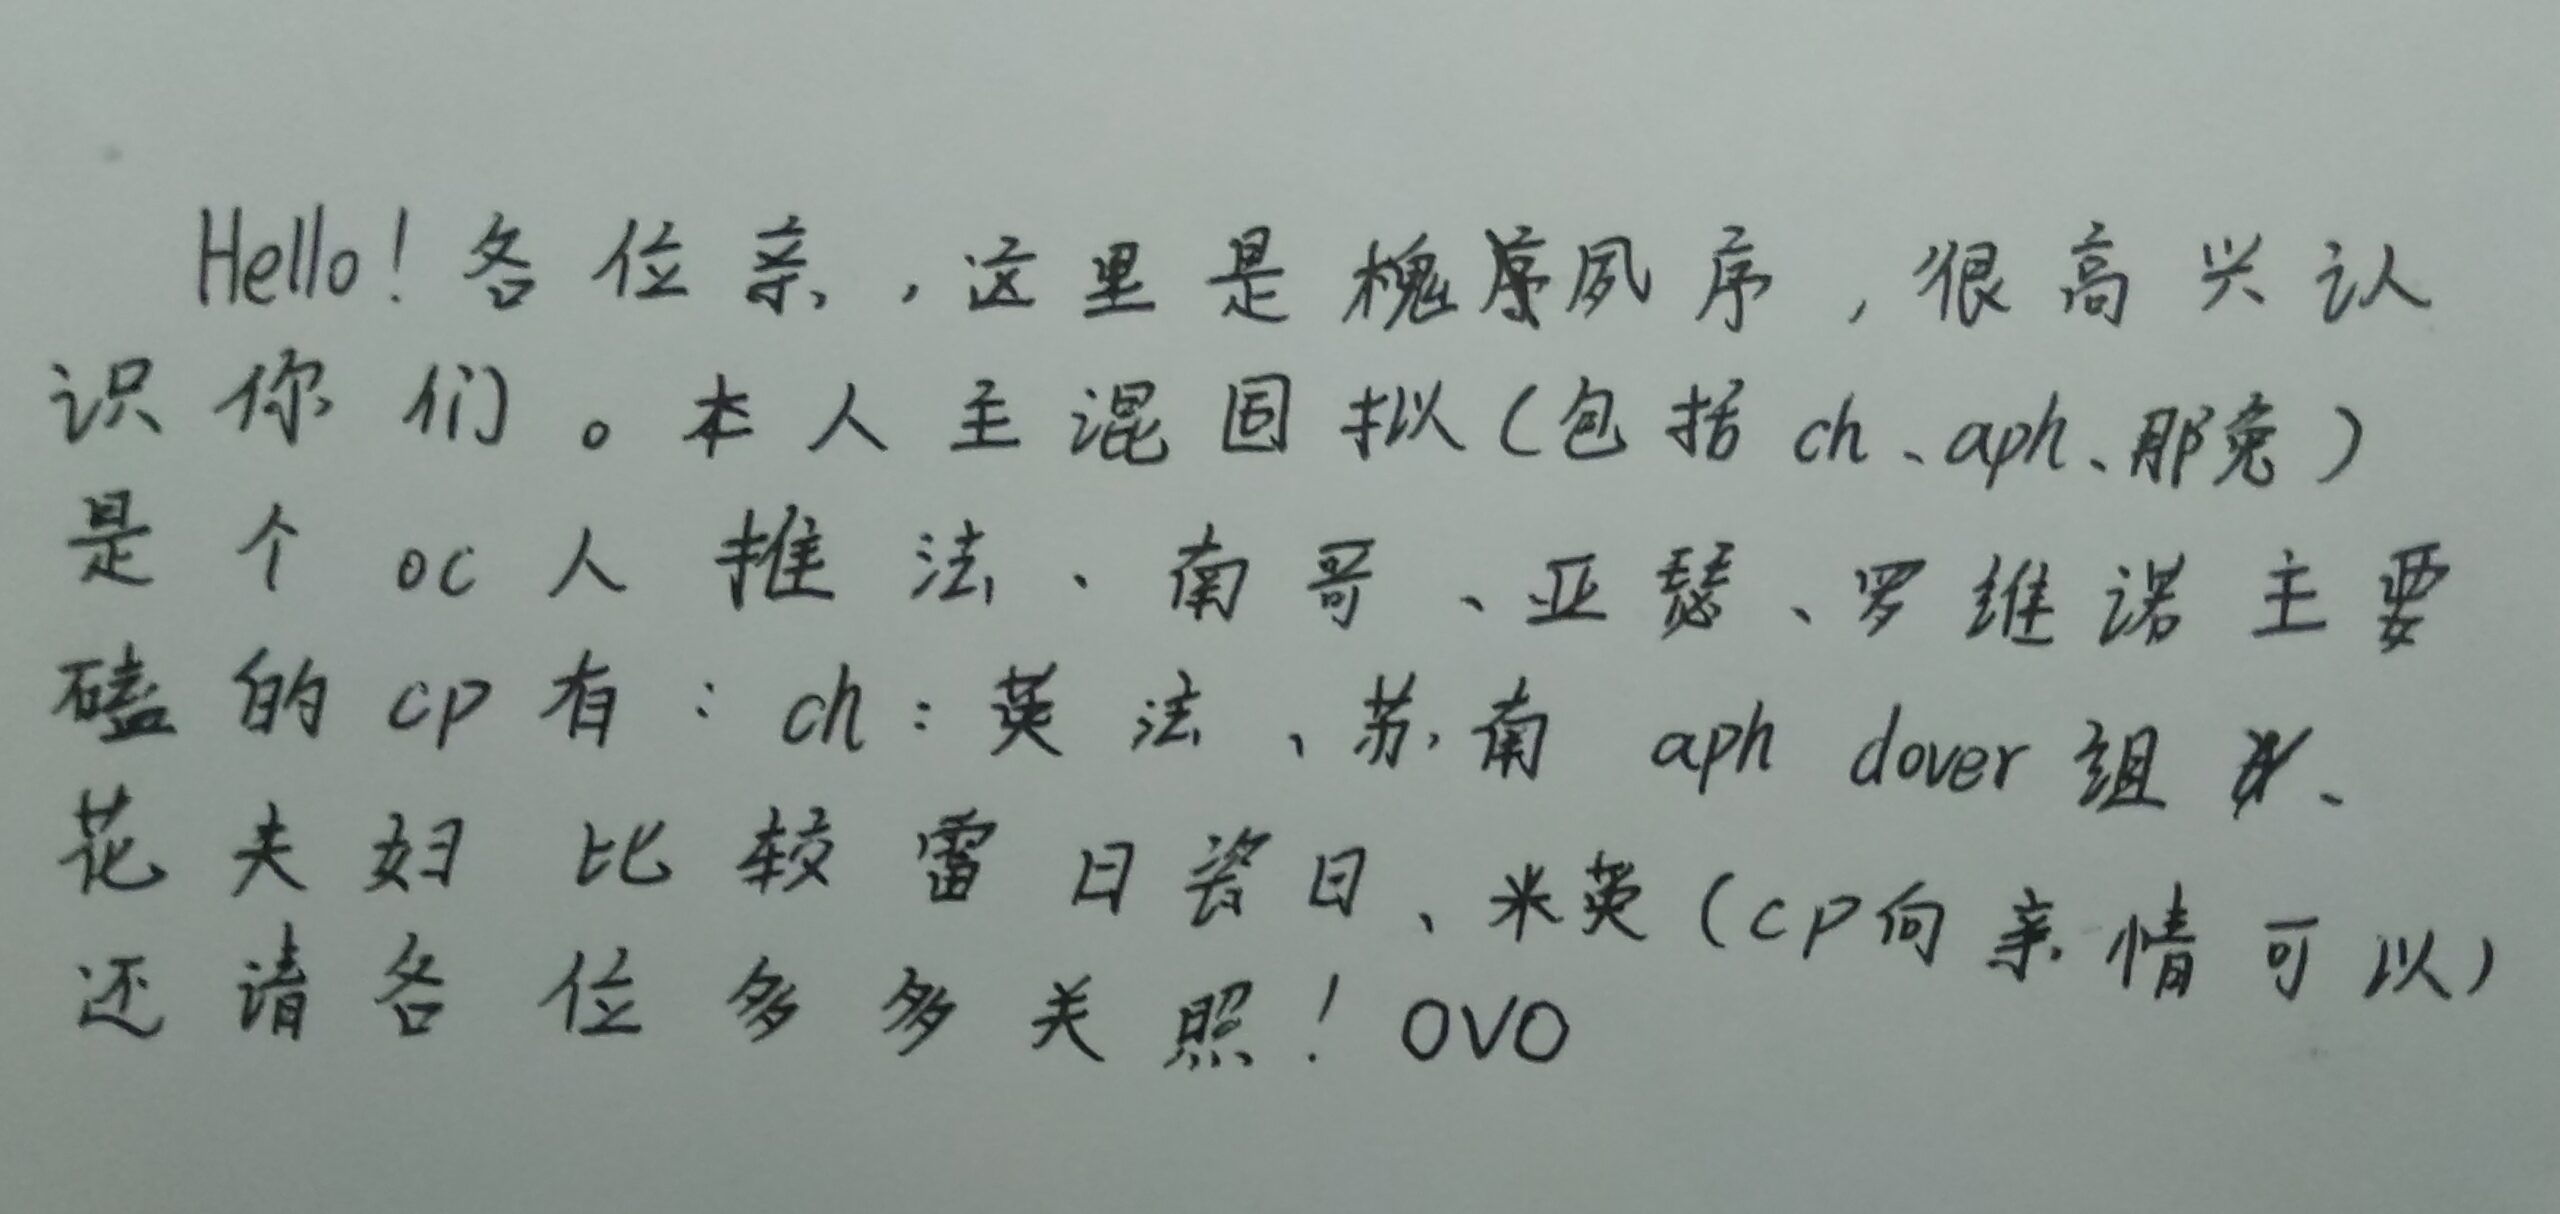 Hello！各位亲，这里是槐夙序，很高兴认
识你们。本人主混国拟（包括ch、aph、那兔）
是个oc人推法、南哥、亚瑟、罗维诺主要
磕的cp有：ch：英法、苏南 aph dover组、
花夫妇 比较雷日瓷日、米英（cp向亲情可以）
还请各位多多关照！OVO